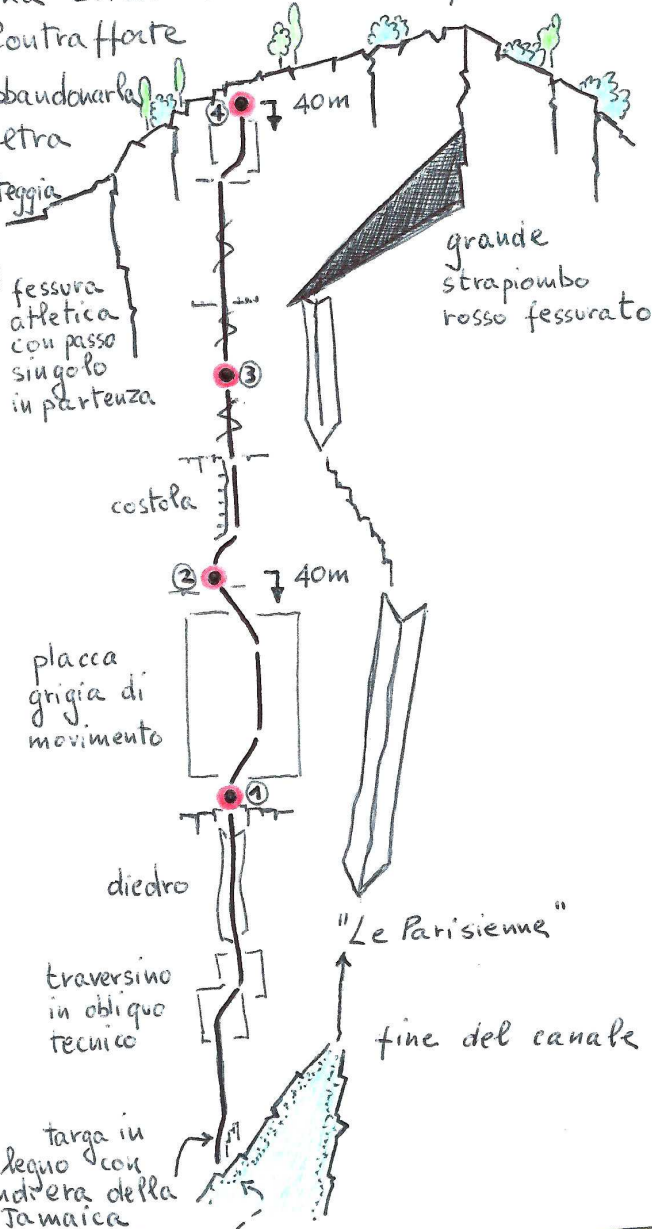 contrafforte
bbandonarla
etra
teggia
④
40m
grande
strapiombo
rosso fessurato
fessura
atletica
con passo
singolo
in partenza
③
costola
②
40m
placca
grigia di
movimento
①
diedro
"Le Parisienne"
traversino
in obliquo
tecnico
fine del canale
targa in
legno con
ndiera della
Jamaica